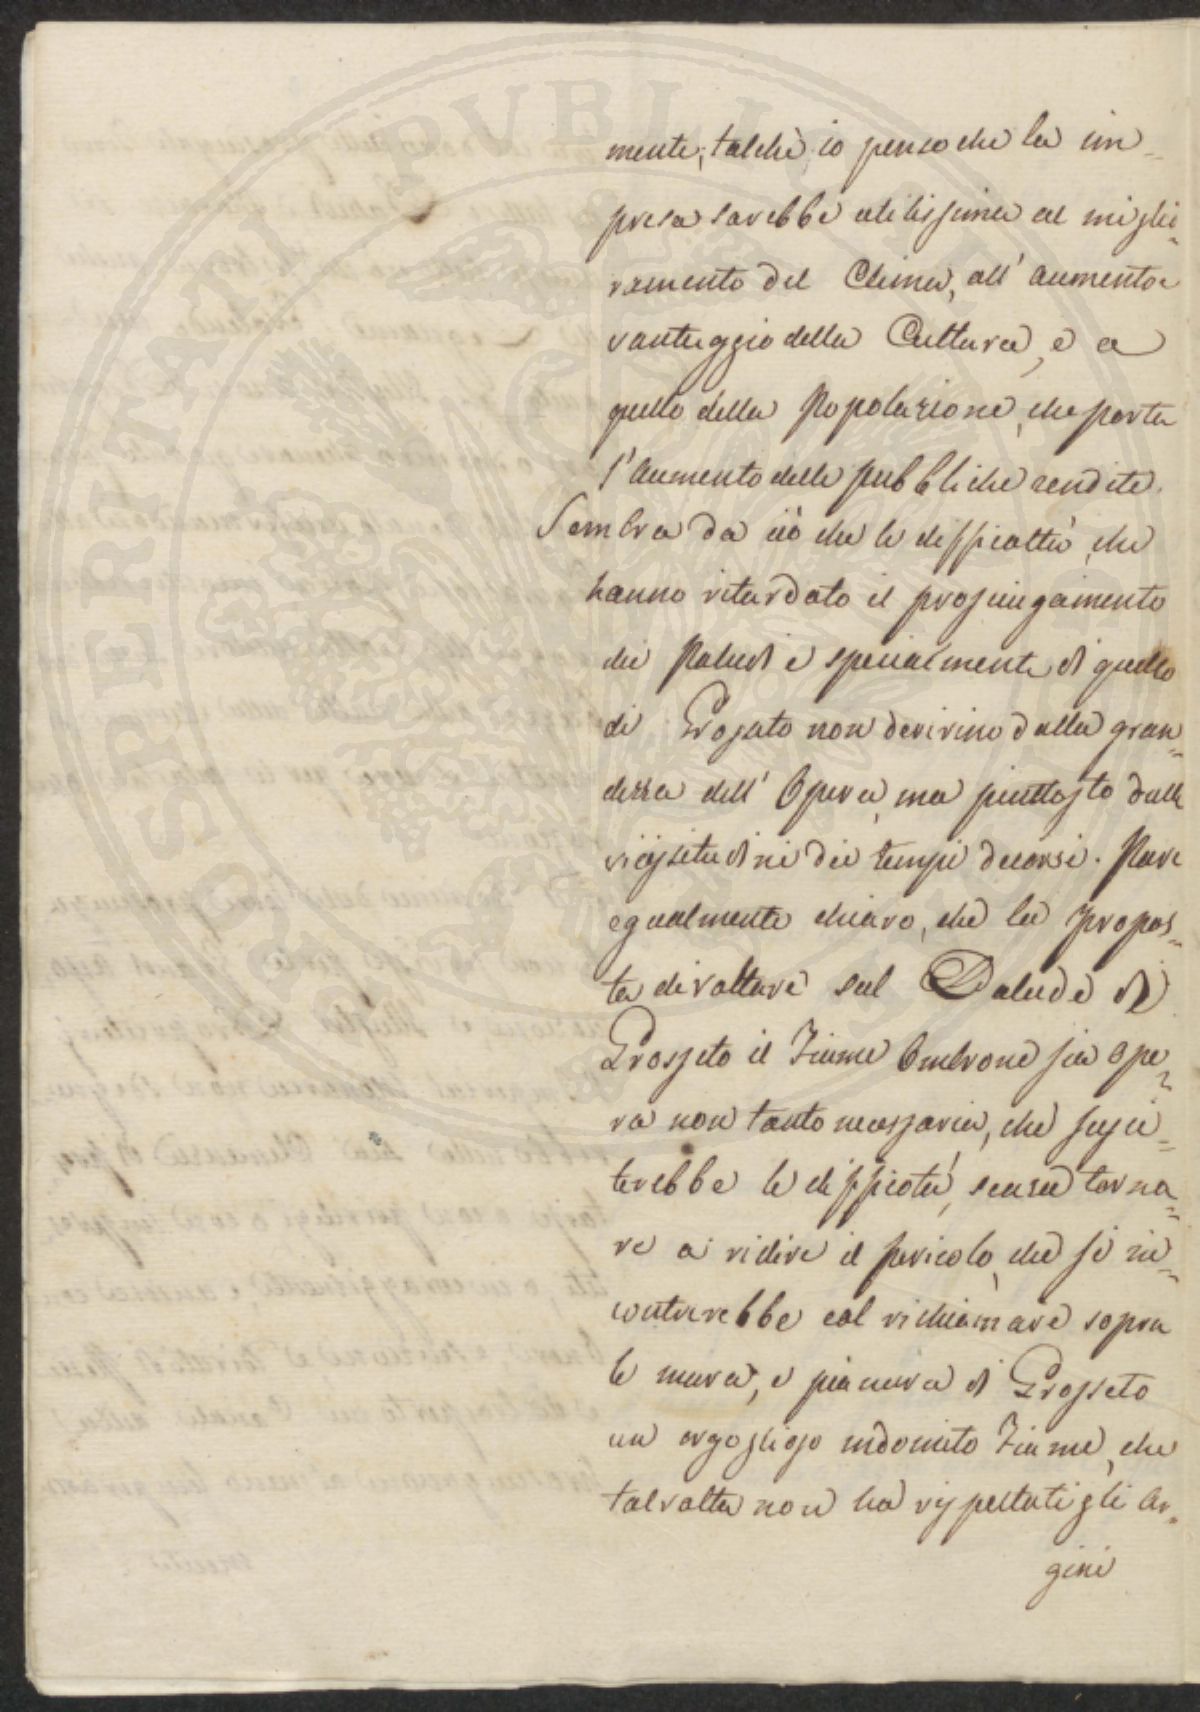 mente, talchè io penso che la im=
presa sarebbe utilissima al miglio=
ramento del Clima, all' aumento e
vantaggio della Cultura, e a
quello della Popolazione, che porta
l'aumento delle pubbliche rendite.
Sembra da ciò che le difficoltà, che
hanno ritardato il prosciugamento
dei Paludi e specialmente di quello
di Grosseto non derivino dalla gran=
dezza dell' Opera, ma piuttosto dalle
vicissitudini dei tempi decorsi. Pare
egualmente chiaro, che la propos=
ta di voltare sul Palude di
Grosseto il Fiume Ombrone sia ope=
ra non tanto necessaria, che susci=
terebbe le difficoltà, senza torna=
re a ridire il pericolo, che si in=
contrerebbe col richiamare sopra
le mura, e pianura di Grosseto
un orgoglioso indomito Fiume, che
talvolta non ha rispettati gli Ar=
gini
PROSPERITATI PVBLICAE